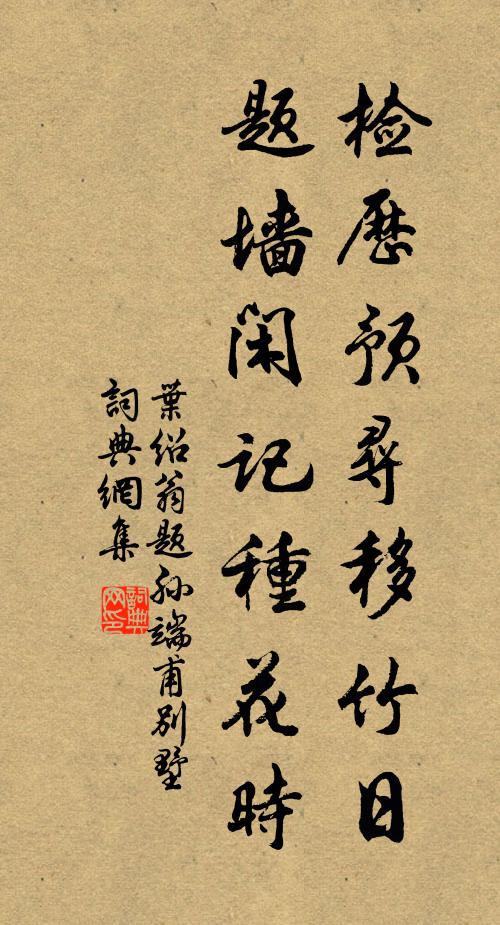 检历预寻移竹日
题墙闲记种花時
葉绍翁题孙端甫别墅
詞典網集
詞典
网印